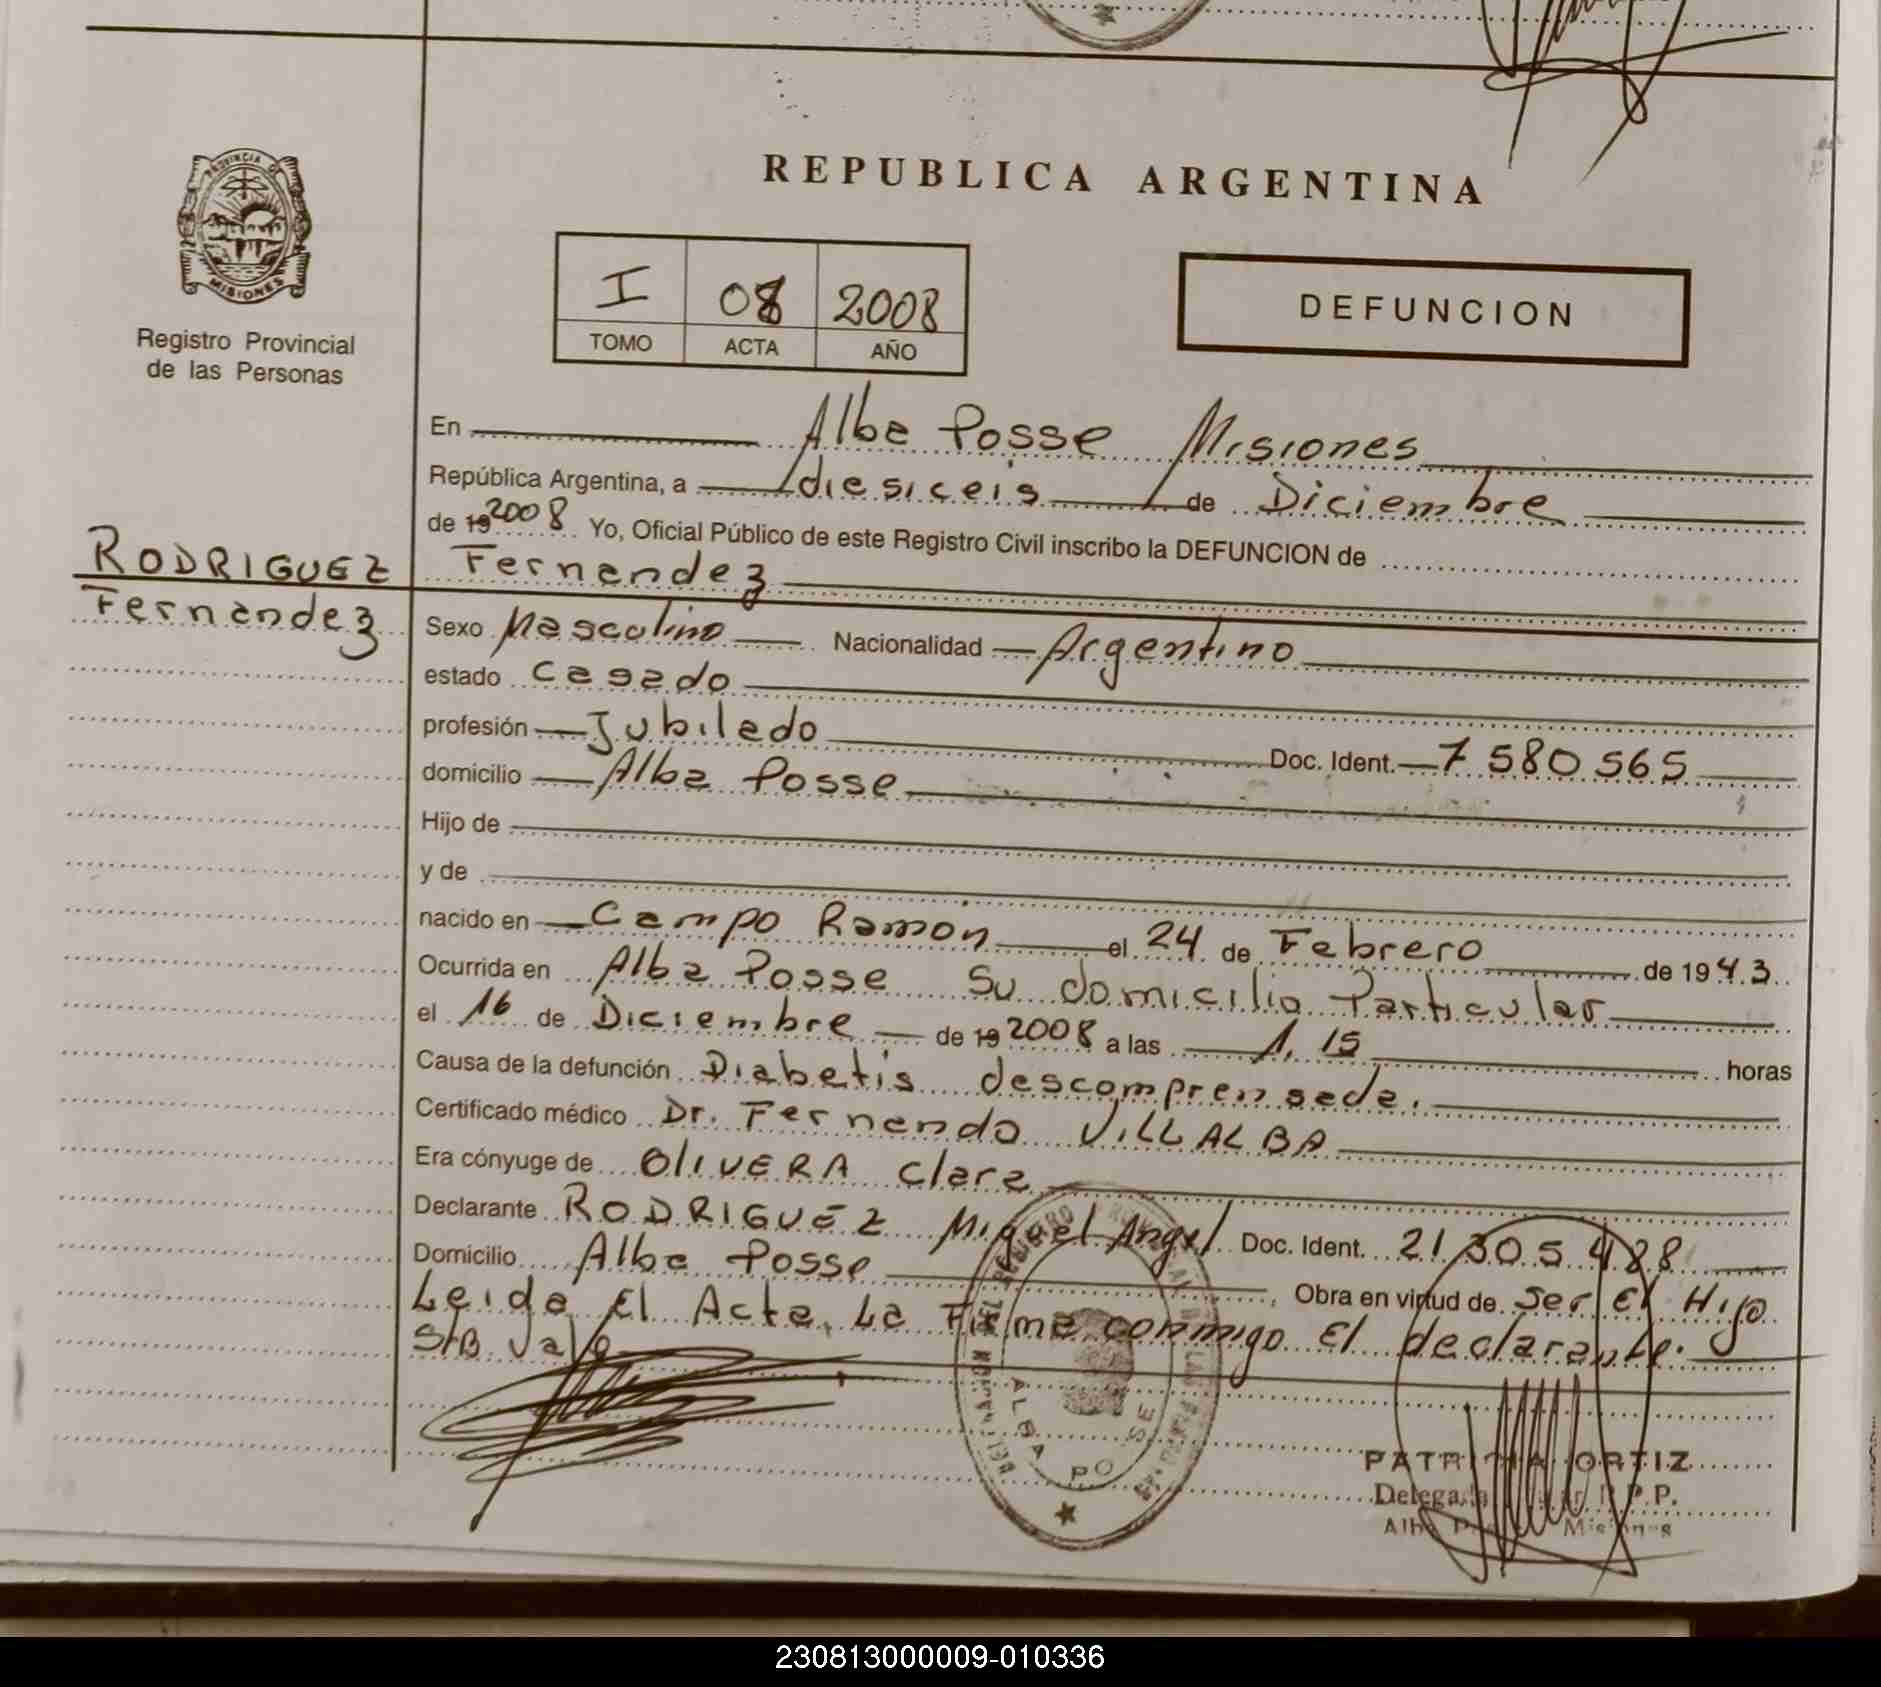 REPUBLICA ARGENTINA
PROVINCIA DE
MISIONES
Registro Provincial
de las Personas
I 08 2008
TOMO ACTA AÑO
DEFUNCION
En Alba Posse Misiones
República Argentina, a diesiceis de Diciembre
de 19 2008 Yo, Oficial Público de este Registro Civil inscribo la DEFUNCION de
RODRIGUEZ Fernandez
Fernandez
Sexo Masculino Nacionalidad Argentino
estado Casado
profesión Jubilado Doc. Ident. 7 580 565
domicilio Alba Posse
Hijo de
y de
nacido en Campo Ramon el 24 de Febrero de 1943
Ocurrida en Alba Posse Su domicilio Particular
el 16 de Diciembre de 19 2008 a las 1,15 horas
Causa de la defunción Diabetis descomprensada.
Certificado médico Dr. Fernando VILLALBA
Era cónyuge de OLIVERA Clara
Declarante RODRIGUEZ Miguel Angel Doc. Ident. 21 305 428
Domicilio Alba Posse, Obra en virtud de Ser El Hijo
Leida El Acta, La Firma conmigo El declarante.
S/B Vale
ALBA POSSE
PATRICIA ORTIZ
Delegada R.P.P.
Alba Posse Misiones
230813000009-010336